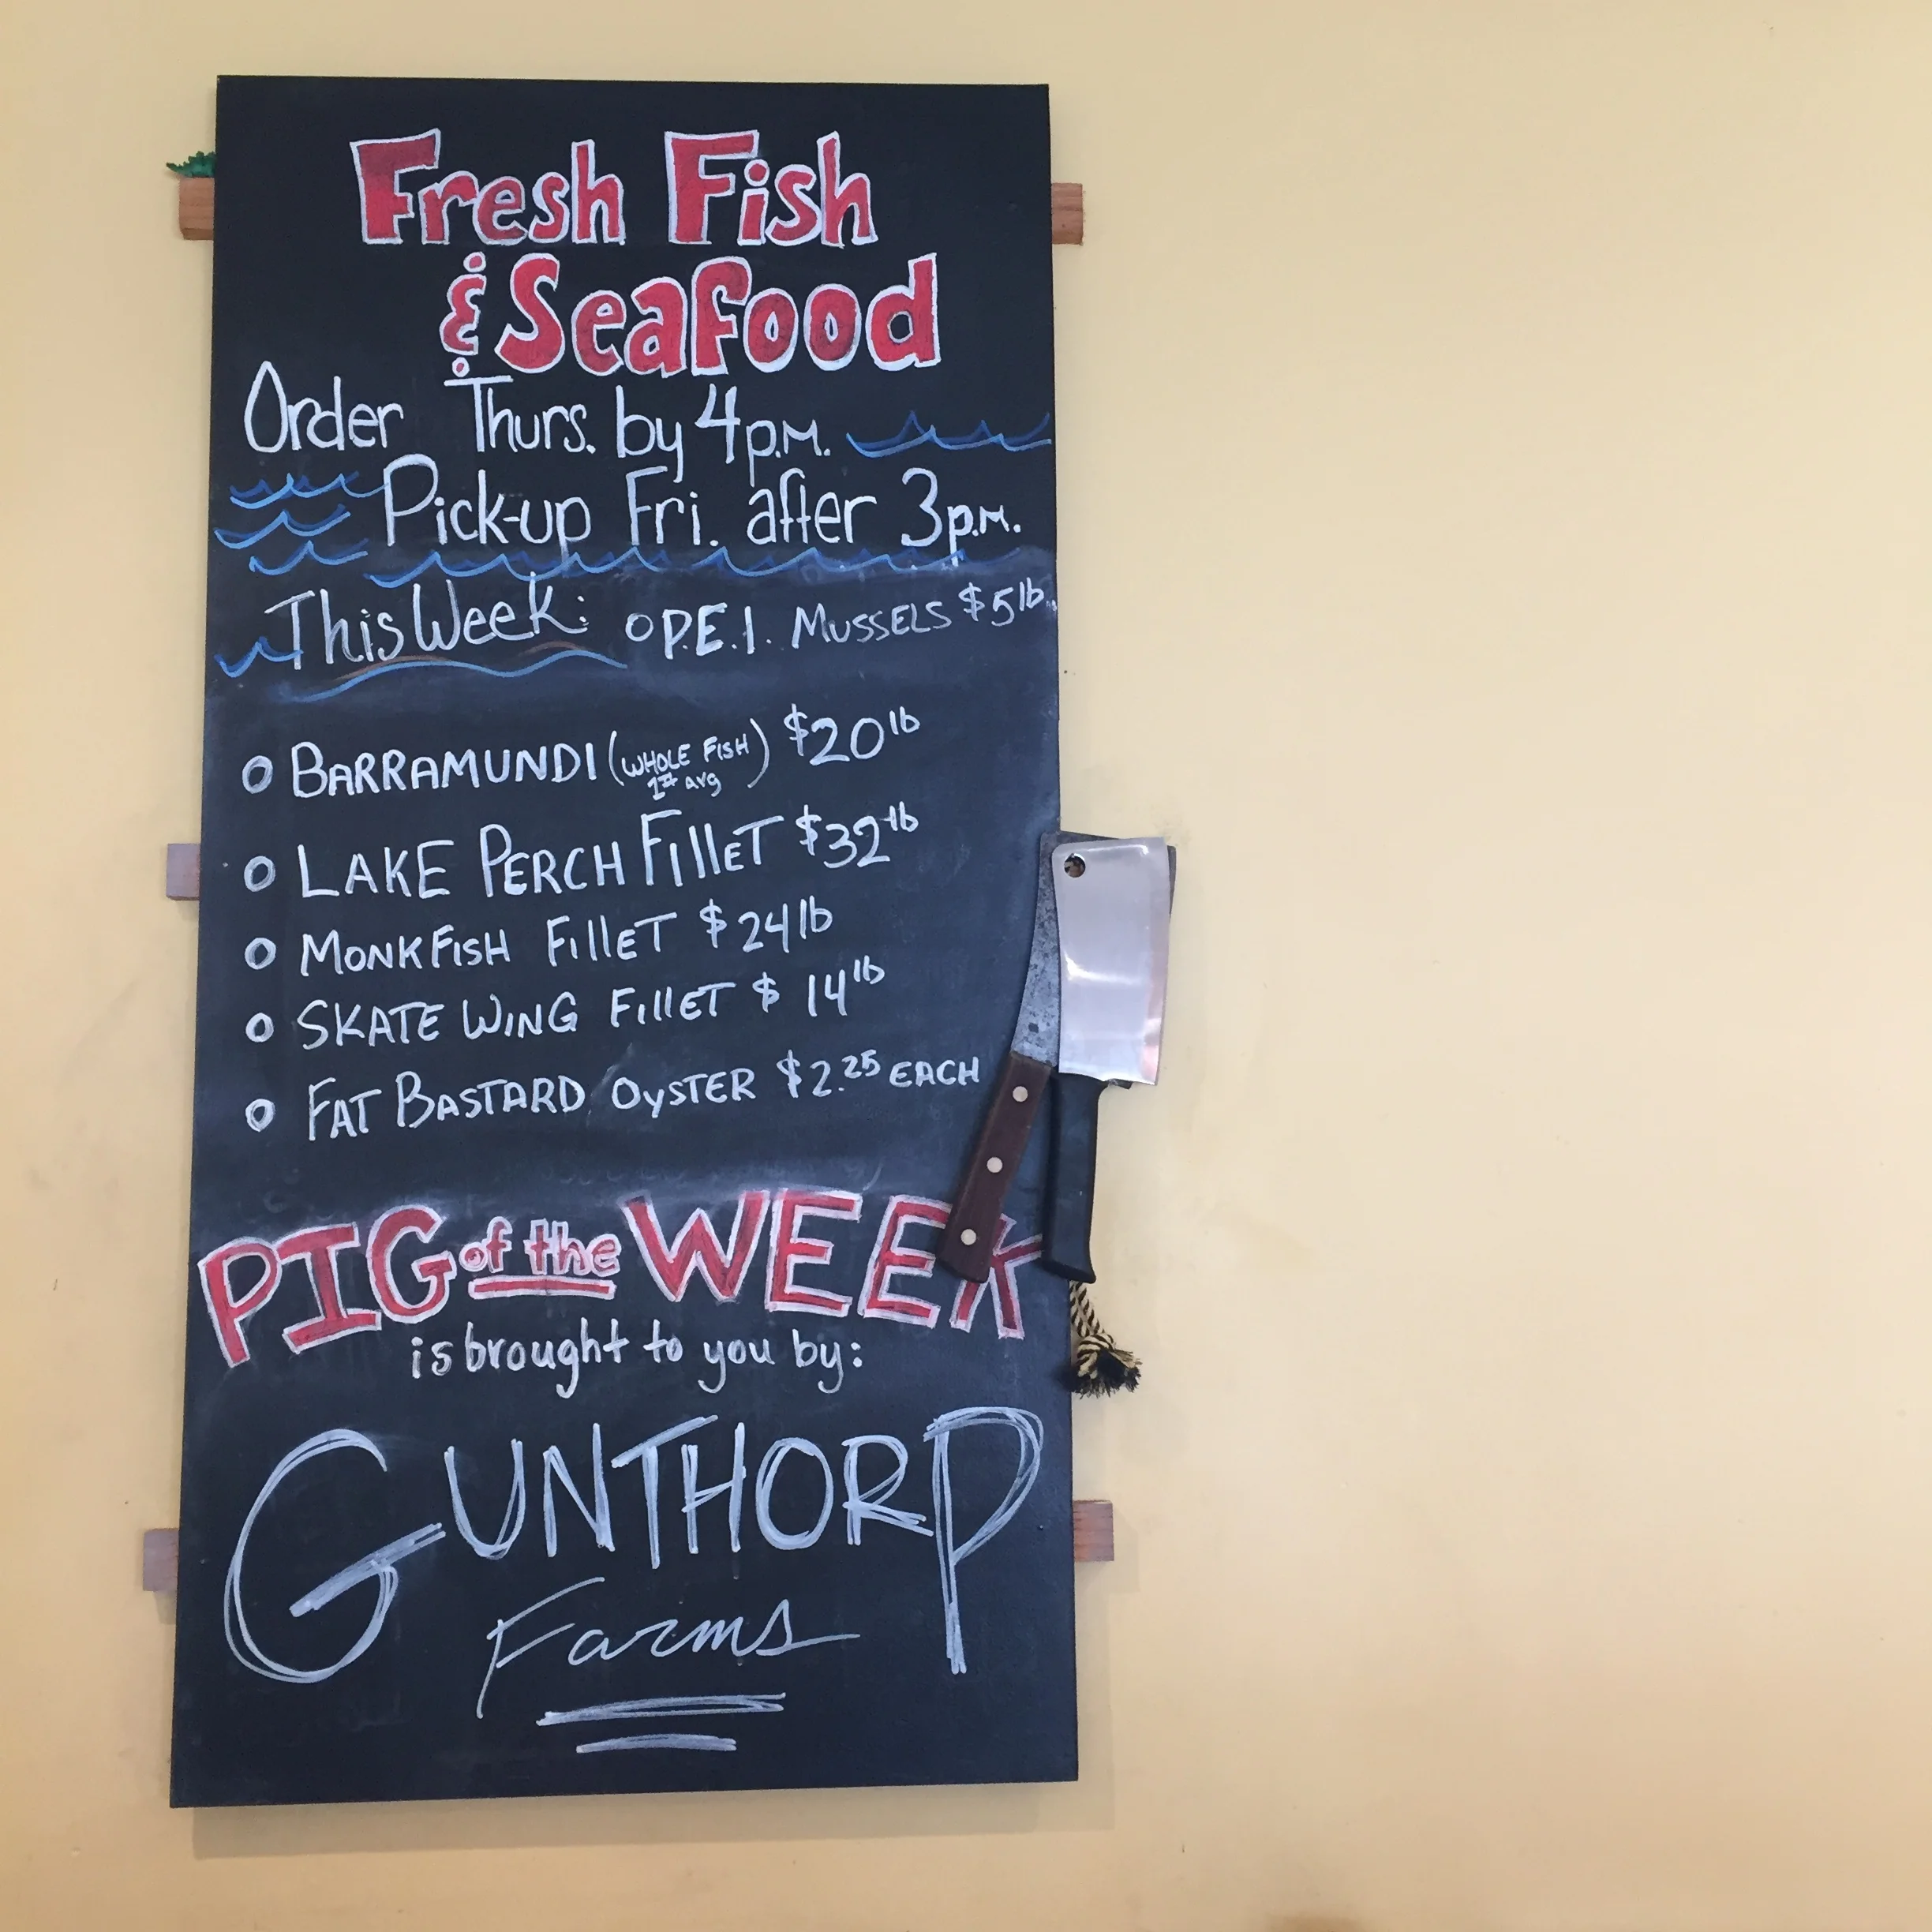 Fresh Fish
& Seafood
Order Thurs. by 4 p.m.
Pick-up Fri. after 3 p.m.
This Week: O P.E.I. MUSSELS $5 lb.
O BARRAMUNDI (WHOLE FISH 1# avg) $20 lb
O LAKE PERCH FillET $32 lb
O MONKFISH FillET $24 lb
O SKATE WING FillET $14 lb
O FAT BASTARD OySTER $2.25 EACH
PIG of the WEEK
is brought to you by:
GUNTHORP
Farms